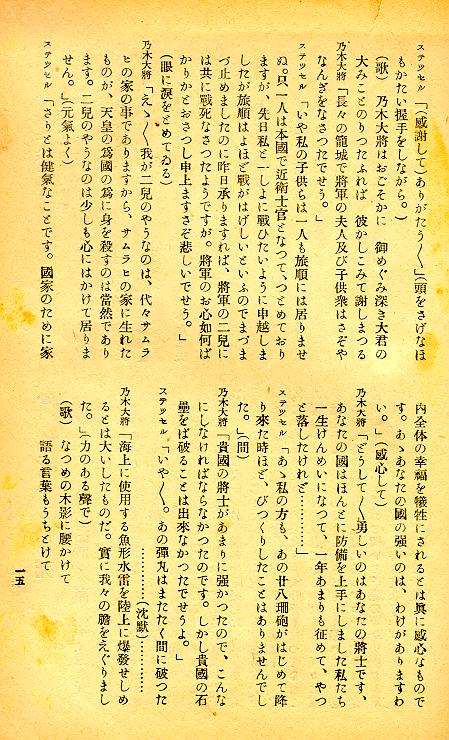 ステツセル「（感謝して）ありがたう〱」（頭をさげなほ
もかたい握手をしながら。）
（歌）　乃木大將はおごそかに　御めぐみ深き大君の
大みことのりつたふれば　彼かしこみて謝しまつる
乃木大將「長々の籠城で將軍の夫人及び子供衆はさぞや
なんぎをなさつたでせう。」
ステツセル「いや私の子供らは一人も旅順には居りませ
ぬ。只一人は本國で近衛士官となつて、つとめており
ますが、先日私と一しよに戰ひたいように申越しま
したが旅順はよほど戰がはげしいといふのでまづま
づ止めましたのに昨日承りますれば、將軍の二兒に
は共に戰死なさつたようですが。將軍のお心如何ば
かりかとおさつし申上ますさぞ悲しいでせう。」
（眼に涙をとめてゐる）
乃木大將「えゝ〱我が二兒のやうなのは、代々サムラ
ヒの家の事でありますから、サムラヒの家に生れた
ものが、天皇の爲國の爲に身を殺すのは當然であり
ます。二兒のやうなのは少しも心にはかけて居りま
せん。」（元氣よく）
ステツセル「さりとは健氣なことです。國家のために家
内全体の幸福を犧牲にされるとは眞に感心なもので
す。あゝあなたの國の強いのは、わけがありますわ
い。」（感心して）
乃木大將「どうして〱勇しいのはあなたの將士です、
あなたの國はほんとに防備を上手にしました私たち
一生けんめいになつて、一年あまりも征めて、やつ
と落したけれど………」
ステツセル「あゝ私の方も、あの廿八珊砲がはじめて降
り來た時ほど、びつくりしたことはありませんでし
た。」（間）
乃木大將「貴國の將士があまりに强かつたので、こんな
にしなければならなかつたのです。しかし貴國の石
壘をば破ることは出來なかつたでせうよ。」
ステツセル「いや〱。あの彈丸はまたたく間に破つた
…………………（沈默）…………
乃木大將「海上に使用する魚形水雷を陸上に爆發せしめ
るとは大いしたものだ。實に我々の膽をえぐりまし
た。」（力のある聲で）
（歌）　なつめの木影に腰かけて
語る言葉もうちとけて
一五